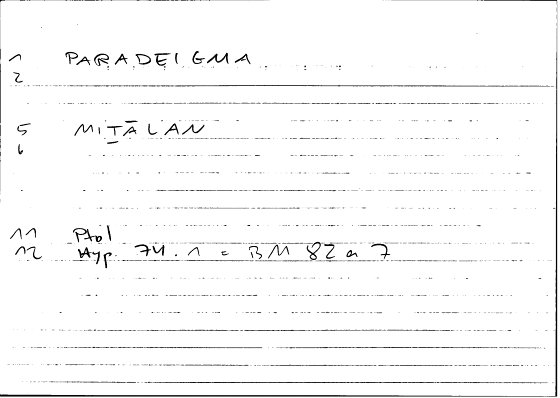 1 PARADEIGMA
2
5 MIṮĀLAN
6
11 Ptol
12 Hyp. 74.1 = BM 82 a 7